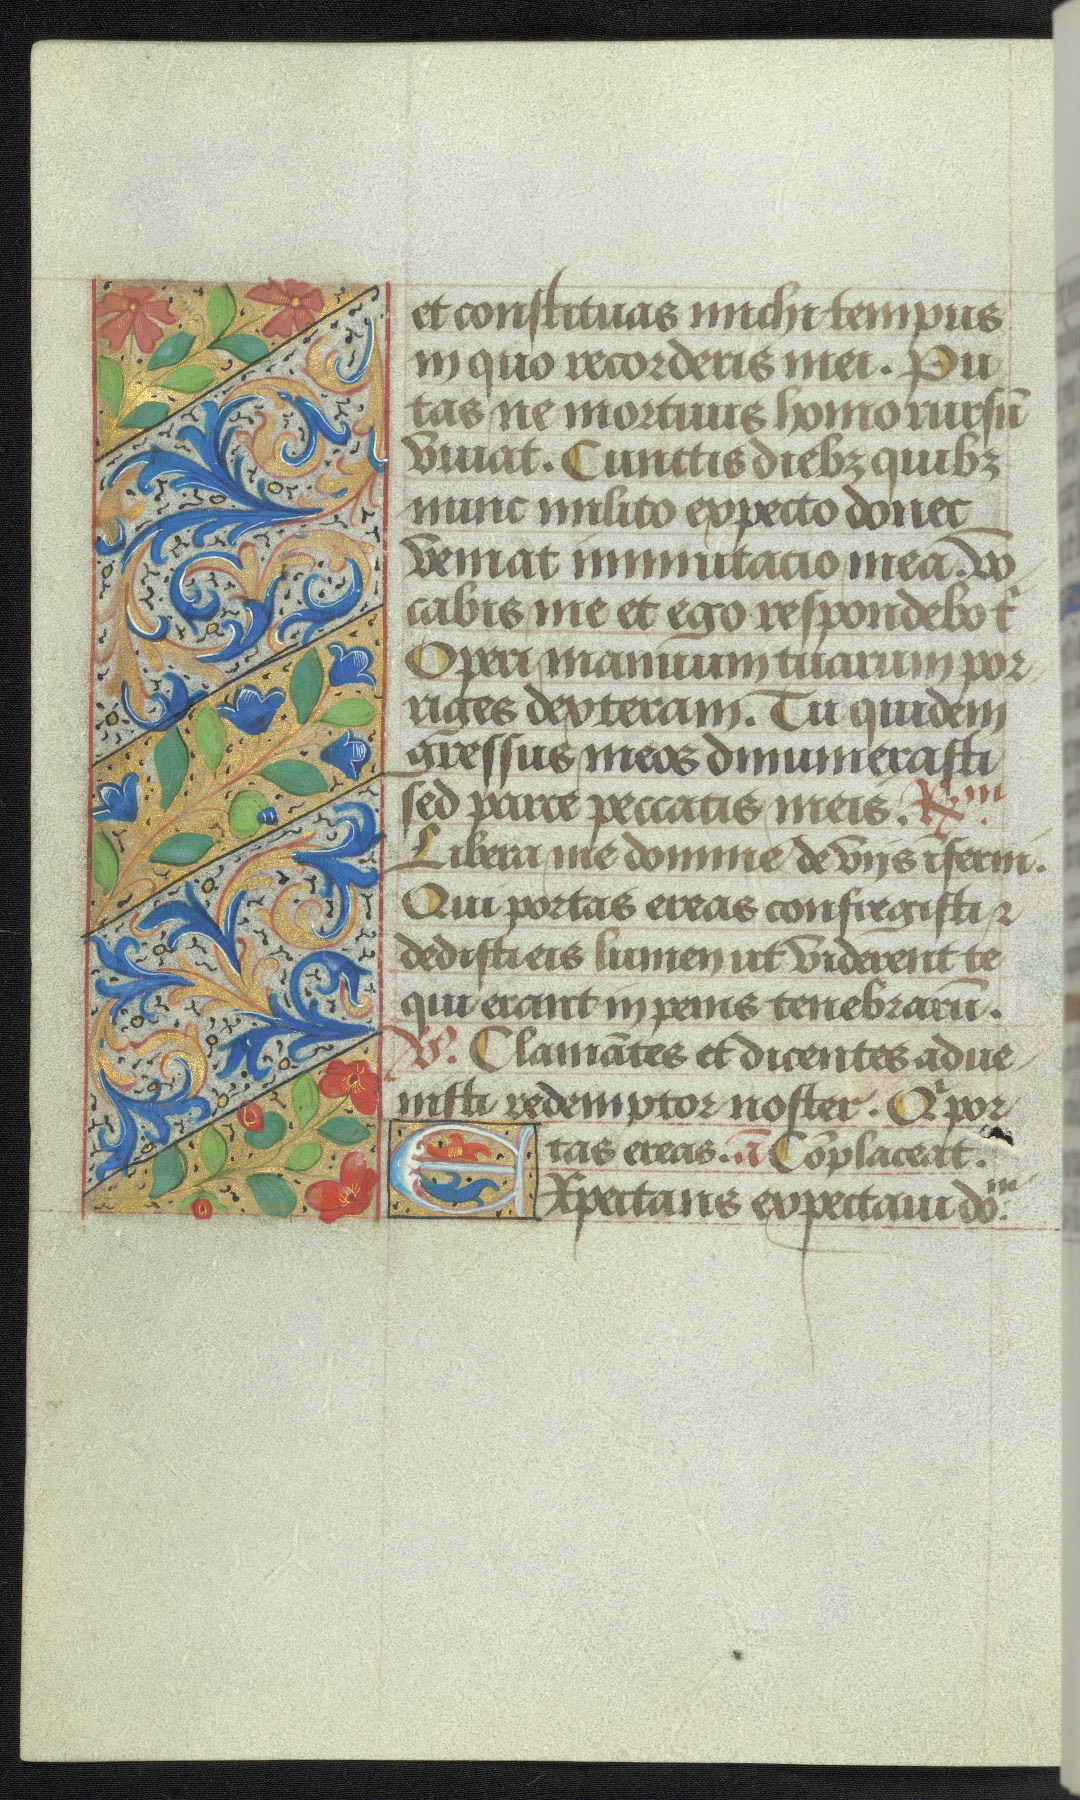 et constituas michi tempus
in quo recorderis mei. Pu
tas ne mortuus homo rursū
viuat. Cunctis diebꝫ quibꝫ
nunc milito expecto donec
veniat immutacio mea. Vo
cabis me et ego respondebo t̄
Operi manuum tuarum por
riges dexteram. Tu quidem
gressus meos dinumerasti
sed parce peccatis meis. R̸m.
Libera me domine de vijs īferni.
Qui portas ereas confregisti ꝛ
dedisti eis lumen ut viderent te
qui erant in penis tenebrarū.
V̸. Clamātes et dicentes adue
nisti redemptor noster. Qⁱ por
tas ereas. ā Cōplaceat.
EXpectans expectaui doᵐ.